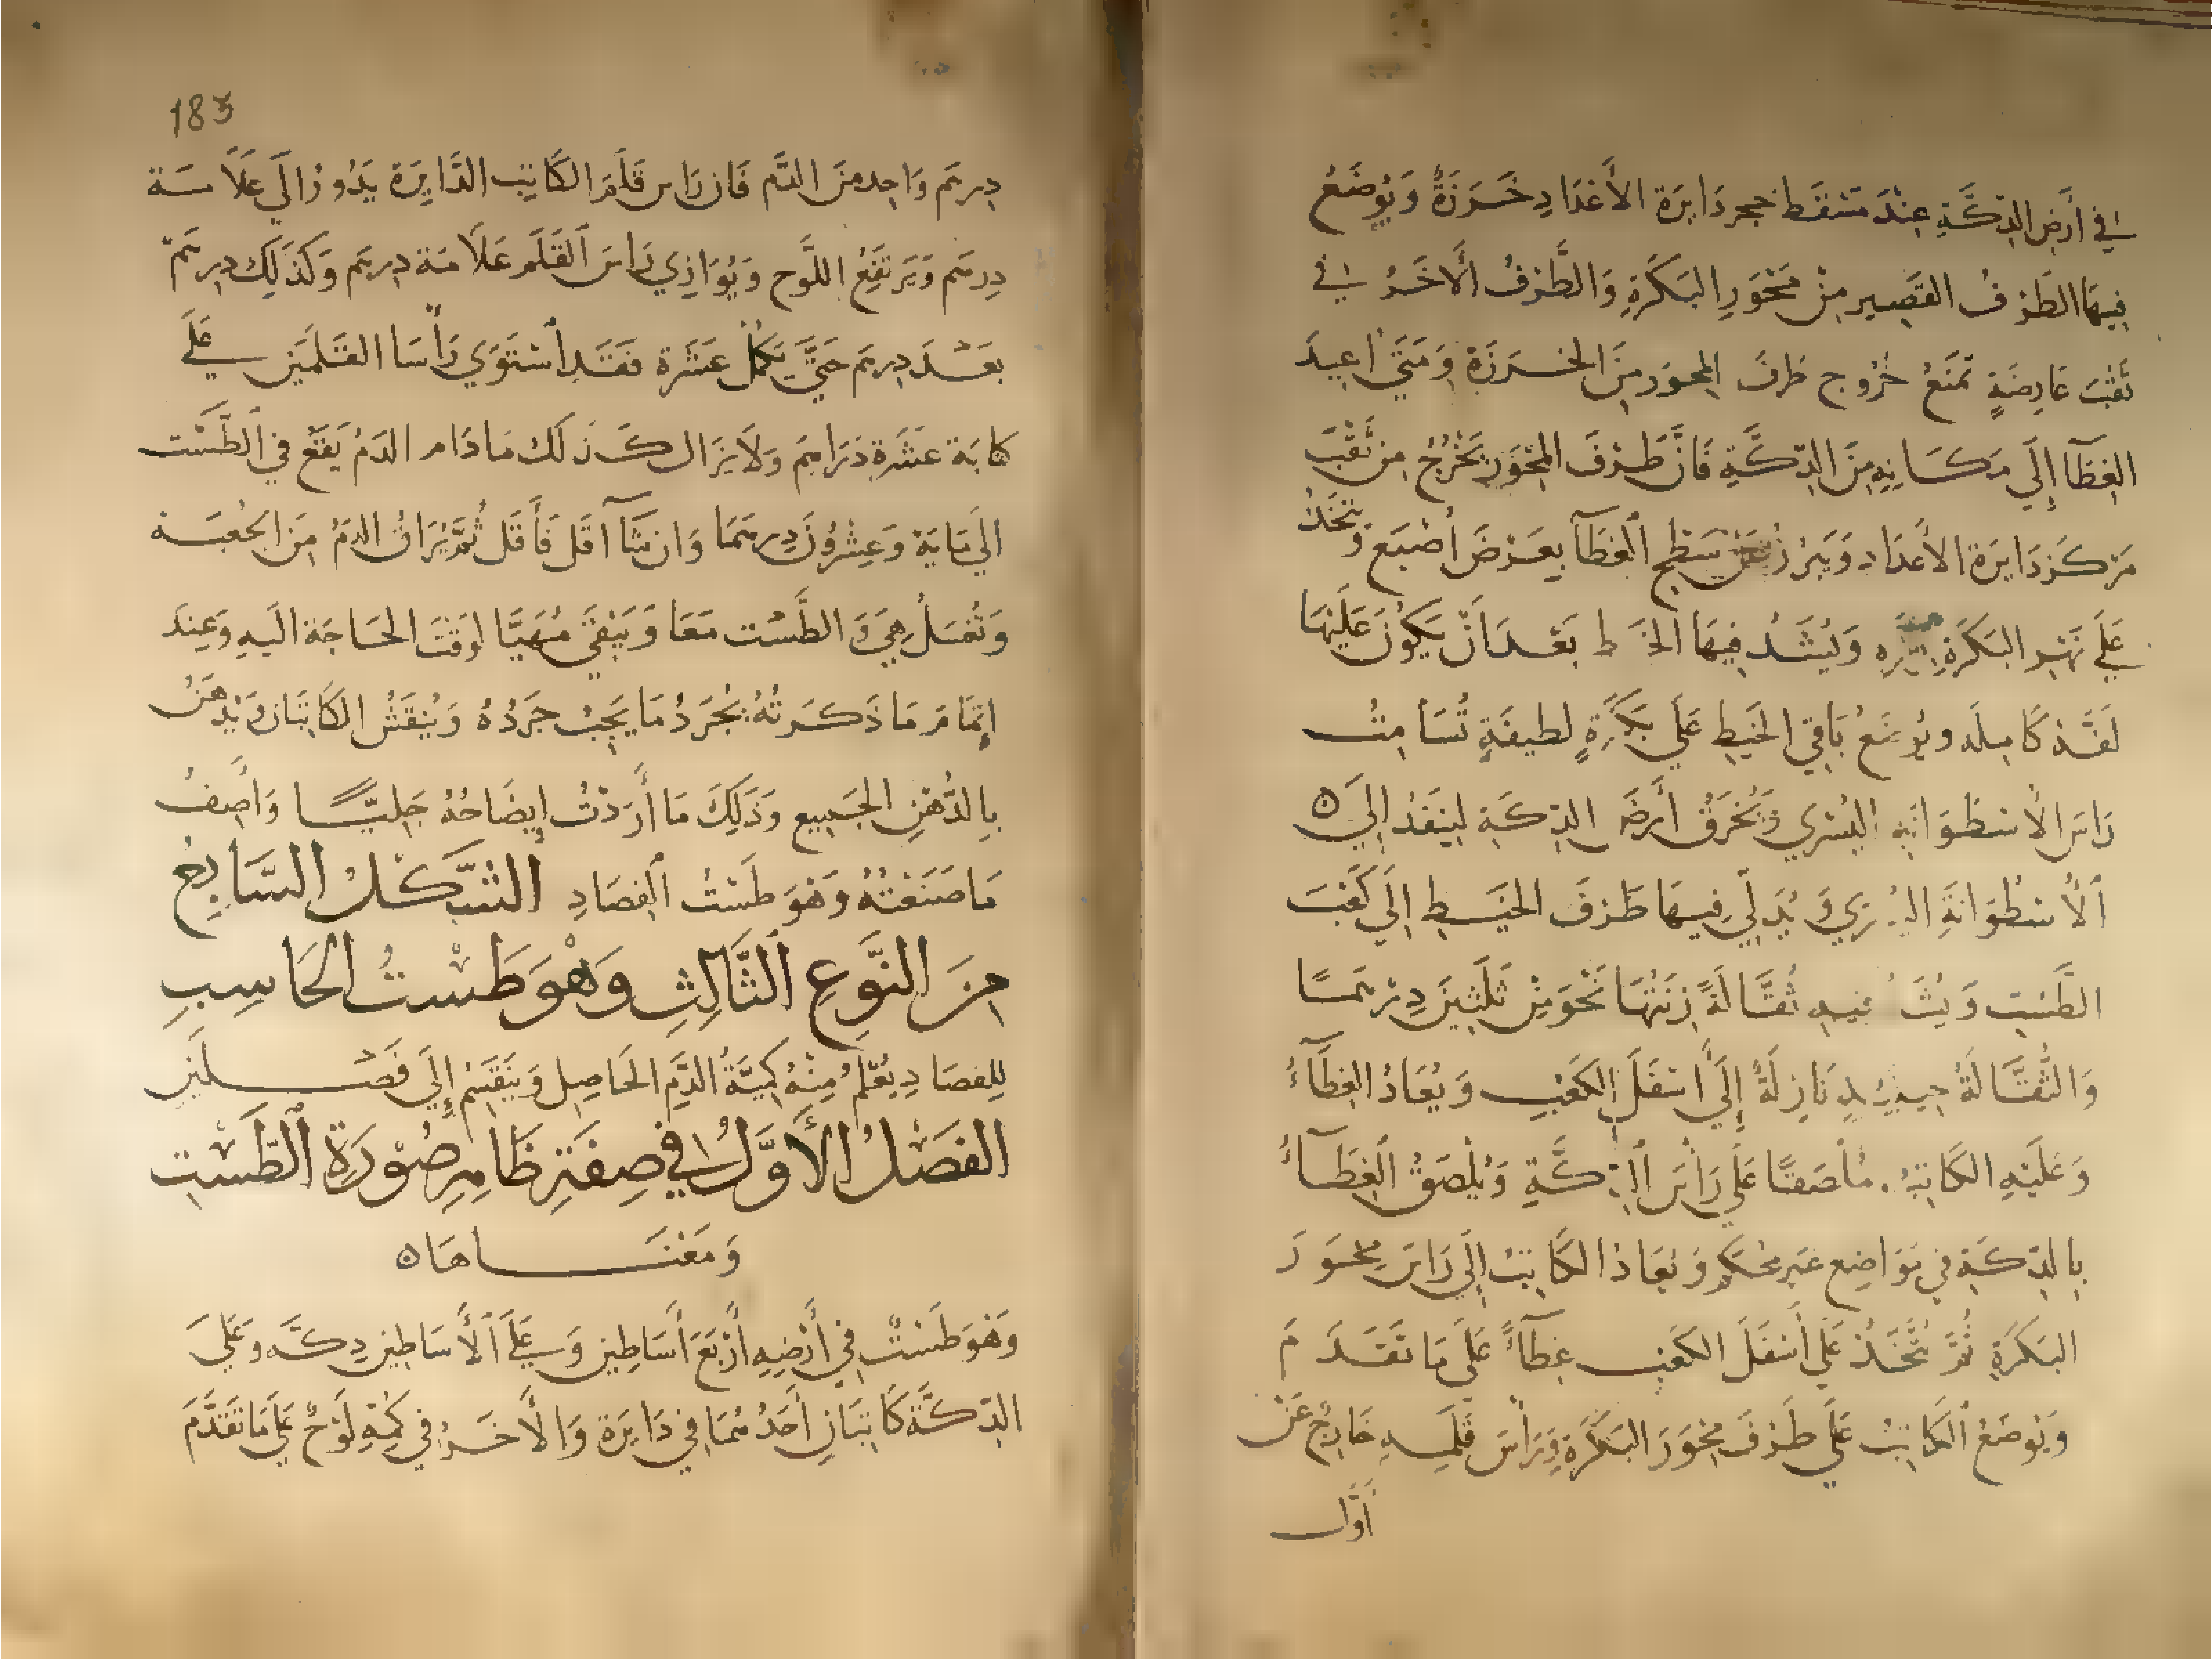 في أرض الدِّكَّةِ عِنْدَ مَسْقَط حجر دَايرَة الأَعْدَادِ خَرَزَةٌ وَيُوضَعُ
فِيهَا الطَرْفُ القَصِير مِنْ مَحْوَرِ البَكَرَةِ وَالطَّرْفُ الآخَرُ في
ثَقْبَ عَارِضَةٍ تَمْنَعُ خُرُوج طَرفَ المحوَر مِنَ الخَرَزَة وَمَتَى أعيدَ
الغِطَآ إلَى مَكَانِهِ مِنَ الدِّكَّةِ فَانَّ طَرْفَ المِحْوَر يَخْرُجُ مِن ثَقْبَ
مَرْكَز دَايرَة الأعدَاد وَيَبْرُزُ عَنْ سَطْح الغِطَآ بِعَرْضَ أصْبَع وَتتَّخَذُ
عَلَى نَهْر البَكَرَةِ وَيُشَدُ فِيهَا الخَيط بَعْدَ أنْ يَكُونَ عَلَيْهَا
لَفَّة كَامِلَه ويُوضَعُ بَاقِي الخَيْطِ عَلَى بَكَرَةٍ لطيفَةٍ تُسَامِتُ
رَاسَ الأسْطُوَانَةِ اليُسْرَي وَيُخْرَقُ أرْضَ الدِّكَةِ لِيَنفَذُ إلَى ه
الأسْطُوَانَةَ اليُسْرَي وَيُدَلَّي فِيهَا طَرْفَ الخَيْطِ إلَى كَعْبَ
الطَّسْتِ وَيُشَدُ فيهِ ثُقَّالَةً زِنَتُهَا نَحْوَ مِنْ ثَلَثِينَ دِرْهَمًا
وَالثُّقَّالَةُ حِينَئِذٍ نَازِلَةٌ إلَى أسْفَلَ الكَعْبِ وَيُعَادُ الغِطَآءُ
وَعَلَيْهِ الكَاتِبُ مُلْصَقًا عَلَى رَاْسَ الدِّكَّةِ وَيُلْصَقُ الغِطَآءُ
بِالدِّكَةِ في مَوَاضِع غَير مُحْكَم وَيُعَادُ الكَاتِبُ إلَى رَاسَ مِحْوَرَ
البَكَرَةِ ثُمَّ يُتَّخَذ عَلَى أسْفَلَ الكَعْبِ غِطَآءً عَلَى مَا تَقَدَّمَ
وَيُوضَعُ الكَاتِبُ عَلَى طَرْفَ مِحْوَرَ البَكَرَة وَرَاْسَ قَلَمِهِ خَارِجٌ عَنْ
أوَّل
183
دِرهَم وَاحِد مِنَ الدَّم فَان رَاس قَلَم الكَاتِب الدَّايِرَة يَدُورُ الَي عَلَامَة
دِرهَم وَيَرتَفِعُ اللَّوح وَيُوَازِي رَاسَ القَلَم عَلَامَة دِرهَم وَكَذَلِكَ دِرهَمٌ
بَعْدَ دِرهَم حَتَّى تَكمُلُ عَشَرة فَقَدِ اسْتَوَي رَأسَا القَلَمَين عَلَى
كَابَة عَشَرَة دَرَاهِمَ وَلَا يَزَال كَذَلكَ مَا دَام الدَم يَقَعُ في الطَّسْت
الَي مَايَة وَعِشْرُونَ دِرهَمًا وَان شَآ اقَل فَأقَل ثُمَّ يُرَاقُ الدَمُ مِنَ الجُعْبَة
وَتُغسَلُ هِيَ وَالطَّسْت مَعَا وَيَبْقَى مُهَيَّا لوَقْتَ الحَاجَة الَيهِ وَعِندَ
إتمَام مَا ذَكَرتُهُ يُجْرَدُ مَا يَجِبُ جَردُهُ وَيُنقَشُ الكَاتِبَان وَيُدهَنُ
بِالدُّهْنِ الجَمِيع وَذَلِكَ مَا أرَدْتُ إيضَاحُهُ جَلِيًّا وَأصِفُ
مَا صَنَعْتُهُ وَهْوَ طَسْتُ الفِصَادِ الشَّكْلُ السَّابِعُ
مِنَ النَّوعِ الثَّالِثِ وَهْوَ طَسْتُ الحَاسِبِ
لِلفصَادِ يُعْلَمُ مِنْهُ كَمِيَّةُ الدَّمِ الحَاصِل وَيَنْقَسِمُ إلَى فَصْلَيْن
الفَصْلُ الأوَّلُ في صِفَةِ ظَاهِرِ صُوْرَةِ الطَّسْتِ
وَمَعْنَاهَا ه
وَهوَ طَسْتٌ في أرْضِهِ أرْبَعَ أسَاطِين وَعَلَى الأسَاطِين دِكَّه وَعَلَي
الدِّكَّة كَاتِبَانِ أحَدُهُمَا في دَايرَة وَالآخَر في كُمِّهِ لَوحٌ عَلَى مَا تَقَدَّمَ